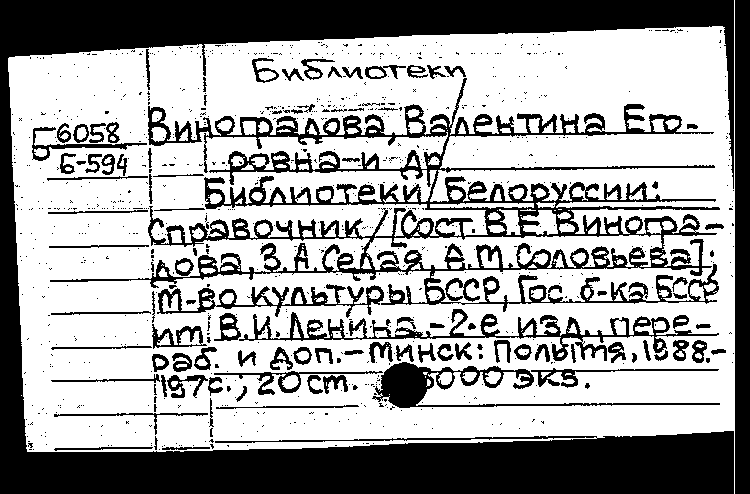 Библиотеки
Б 6058
Б-594
Виноградова, Валентина Его-
ровна и др.
Библиотеки Белоруссии:
Справочник / [Сост. В.Е. Виногра-
дова, З.А. Седая, А.М. Соловьева];
М-во культуры БССР, Гос. б-ка БССР
им. В.И. Ленина. - 2-е изд., пере-
раб. и доп. - Минск: Полымя, 1988. -
197с.; 20 см. 3000 экз.